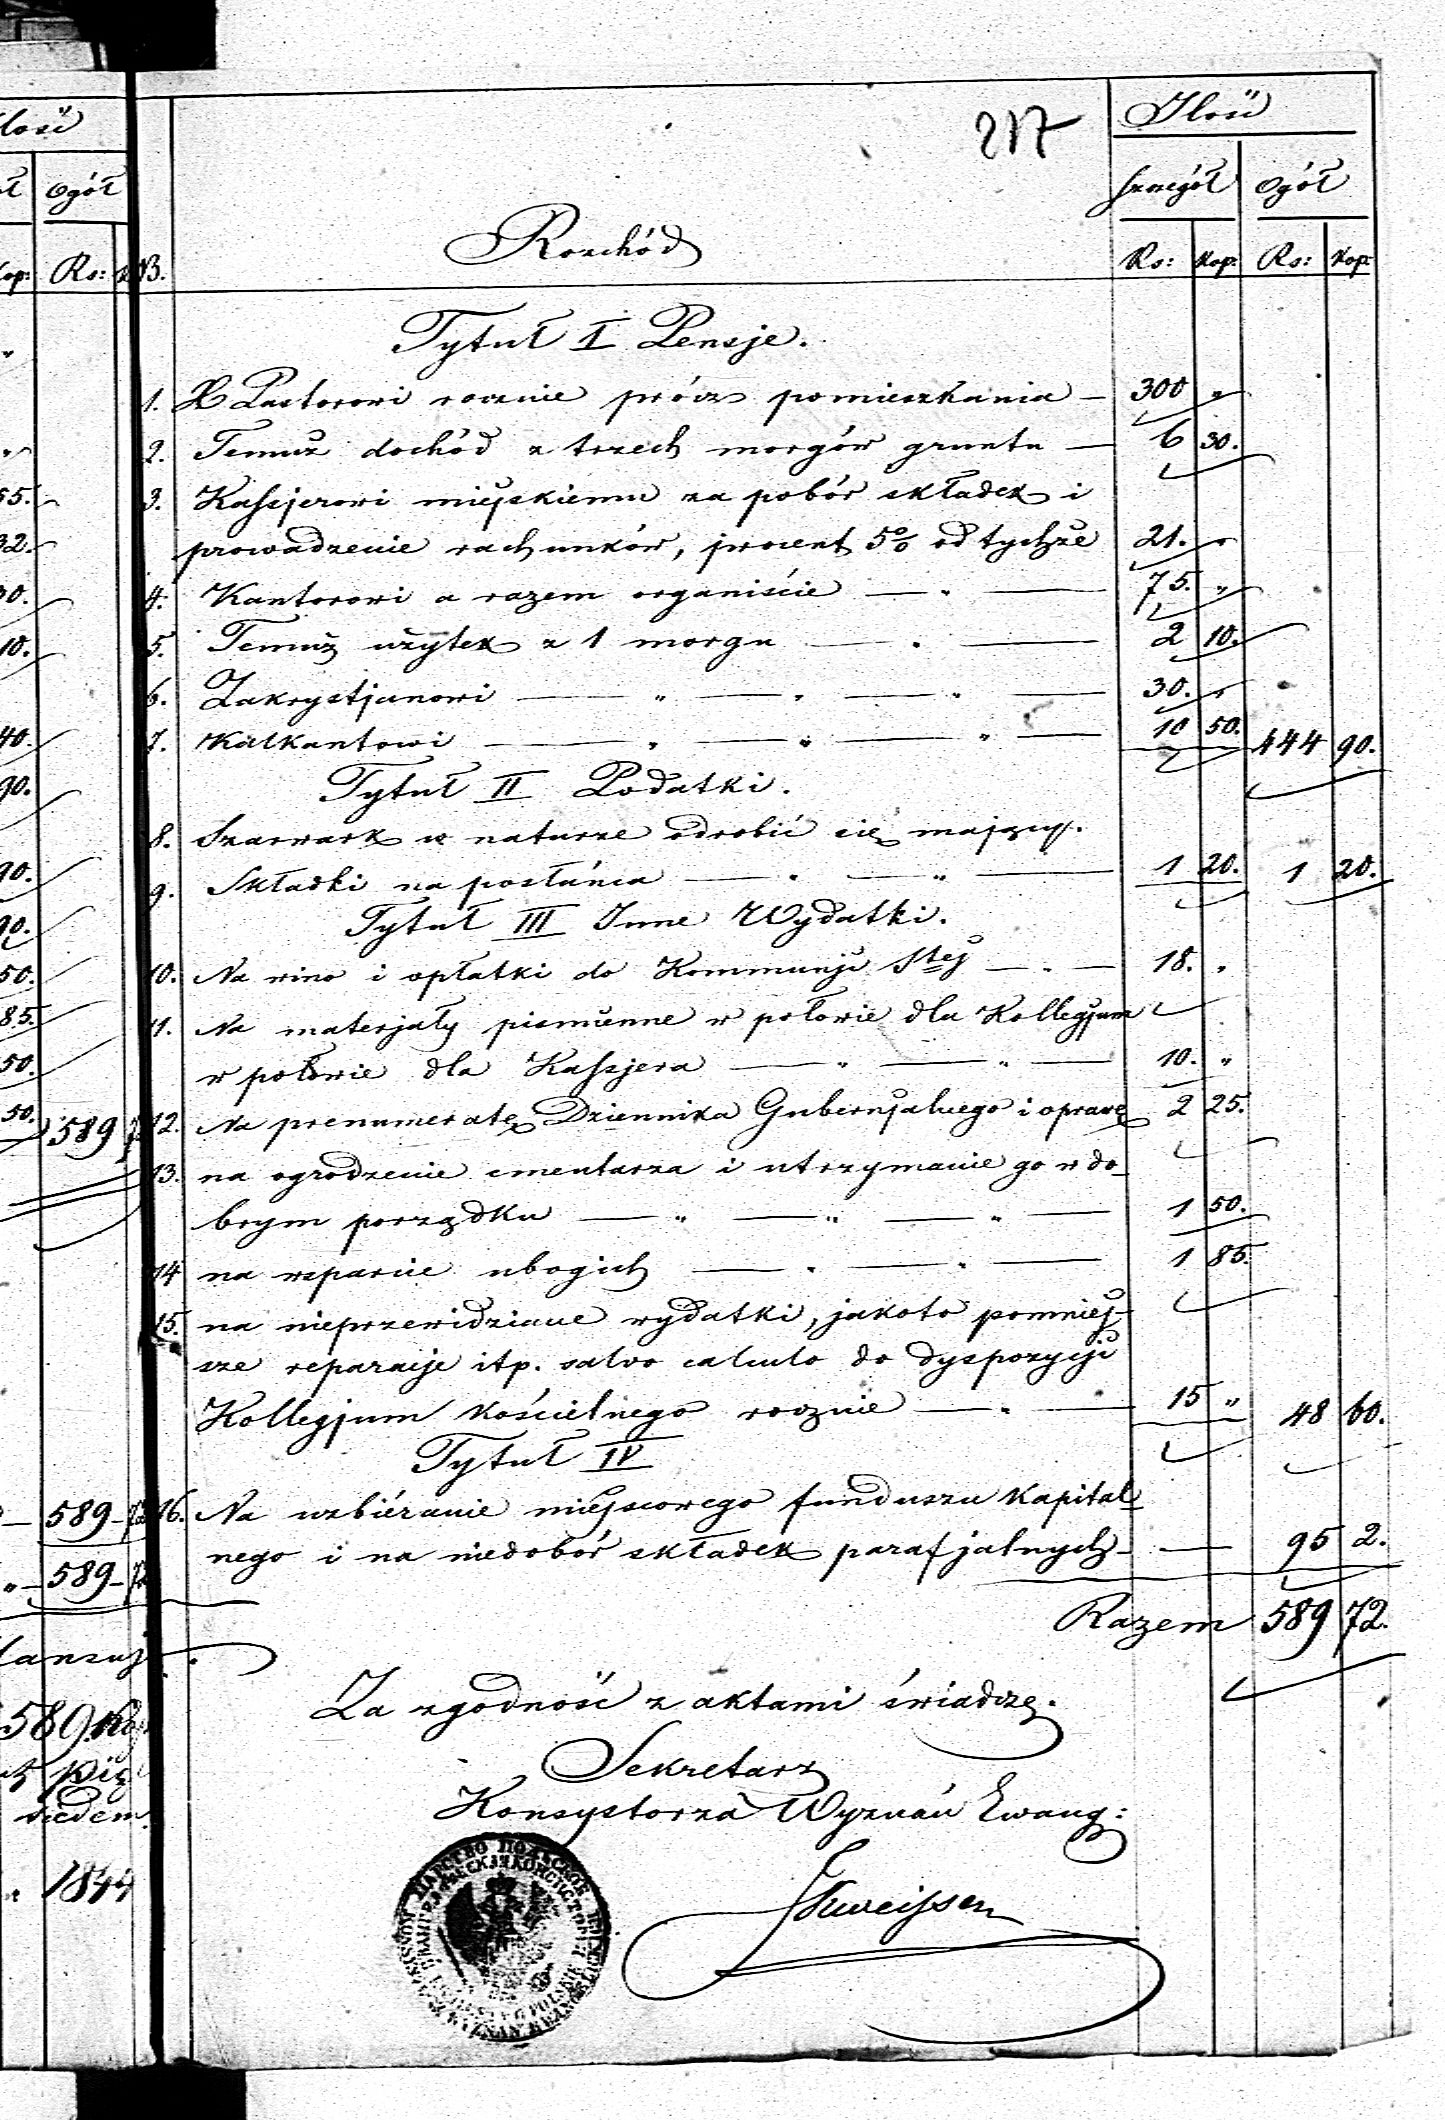 217
Ilość
Ilość
szczegół ogół
Ogół
Rozchód
Rs: Kop: Rs: Kop:
Kop: Rs: NB.
Tytuł I Pensje.
1. X Pastorowi rocznie prócz pomieszkania — 300 "
2. Temuż dochód z trzech morgów gruntu — 6 30.
3. Kassjerowi miejskiemu za pobór składek i
prowadzenie rachunków, procent 5% od tychże 21. "
4. Kantorowi a razem organiście — " — 75. "
5. Temuż użytek z 1 morgu — " — 2 10.
6. Zakrystjanowi — " — " — " — 30. "
7. Kalkantowi — " — " — " — 10 50. 444 90.
Tytuł II Podatki.
8. Szarwark w naturze odrobić się mający.
9. Składki na posłańca — " — " — 1 20. 1 20.
Tytuł III Inne Wydatki.
10. Na wino i opłatki do Kommunji Stej — " — 18. "
11. Na materjały piśmienne w połowie dla Kollegjum
w połowie dla Kassjera — " — " — 10. "
12. Na prenumeratę Dziennika Gubernjalnego i oprawę 2 25.
13. na ogrodzenie cmentarza i utrzymanie go w do-
brym porządku — " — " — " — 1 50.
14 na wsparcie ubogich — " — " — 1 85.
15. na nieprzewidziane wydatki, jakoto pomniej-
sze reparacje itp. salvo calculo do dyspozycji
Kollegjum Kościelnego rocznie — " — 15 " 48 60.
Tytuł IV
16. Na uzbiéranie miejscowego funduszu Kapital
nego i na niedobór składek parafjalnych — — 95 2.
Razem 589 72.
Za zgodność z aktami świadczę.
Sekretarz
Konsystorza Wyznań Ewang:
55.
32.
30.
10.
40.
90.
90.
90.
50.
85.
50.
50. 589
— 589 — 72
" — 589 — 72
589.
siedem
1844